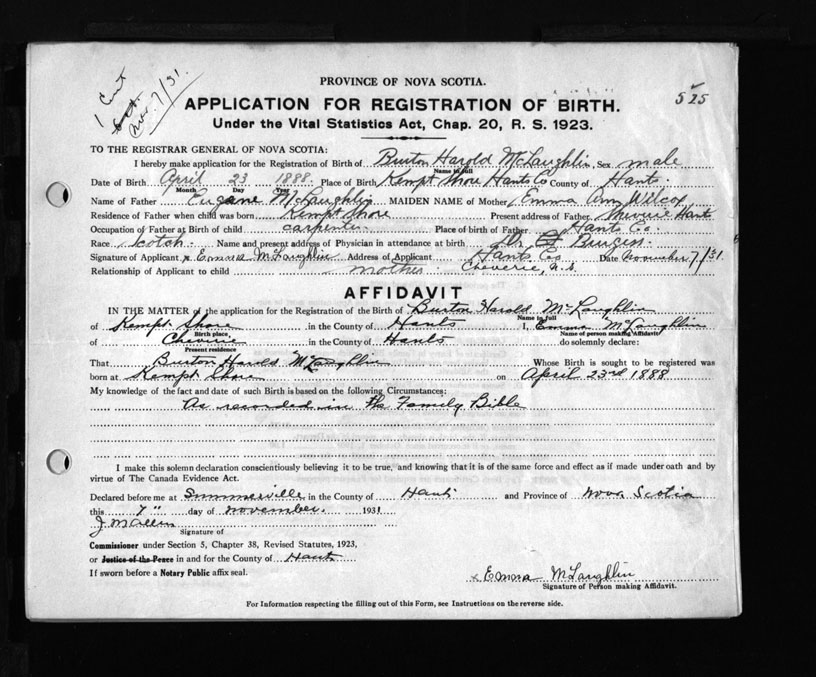 1 Cent
Nov. 7/31
525
PROVINCE OF NOVA SCOTIA.
APPLICATION FOR REGISTRATION OF BIRTH.
Under the Vital Statistics Act, Chap. 20, R. S. 1923.
TO THE REGISTRAR GENERAL OF NOVA SCOTIA:
I hereby make application for the Registration of Birth of Burton Harold McLaughlin, Sex male
Name in full
Date of Birth April 23 1888. Place of Birth Kempt Shore Hants Co County of Hants.
Month Day Year
Name of Father Eugane McLaughlin MAIDEN NAME of Mother Emma Ann Wilcox
Residence of Father when child was born Kempt Shore Present address of Father Hants
Occupation of Father at Birth of child carpenter Place of birth of Father Hants Co.
Race Scotch Name and present address of Physician in attendance at birth Dr Burgess
Signature of Applicant x Emma McLaughlin Address of Applicant Hants Co Date November 7/31.
Relationship of Applicant to child mother. Cheverie, N.S.
AFFIDAVIT
IN THE MATTER of the application for the Registration of the Birth of Burton Harold McLaughlin
Name in full
of Kempt Shore in the County of Hants I, Emma McLaughlin
Birth place Name of person making Affidavit
of Cheverie in the County of Hants do solemnly declare:
Present residence
That Burton Harold McLaughlin Whose Birth is sought to be registered was
born at Kempt Shore on April 23rd 1888
My knowledge of the fact and date of such Birth is based on the following Circumstances:
As recorded in the Family Bible
I make this solemn declaration conscientiously believing it to be true, and knowing that it is of the same force and effect as if made under oath and by
virtue of The Canada Evidence Act.
Declared before me at Summerville in the County of Hants and Province of Nova Scotia
this 7" day of November. 1931
J M Allen
Signature of
Commissioner under Section 5, Chapter 38, Revised Statutes, 1923,
or Justice of the Peace in and for the County of Hants
If sworn before a Notary Public affix seal.
x Emma McLaughlin
Signature of Person making Affidavit.
For Information respecting the filling out of this Form, see Instructions on the reverse side.